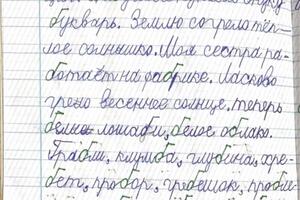 букварь. Землю согрело тёп-
лое солнышко. Моя сестра ра-
ботает на фабрике. Ласково
грело весеннее солнце. теперь
белые лошади, белое облако.
Грабли, клумба, глубина, хре-
бет, пробор, гребешок, пробле